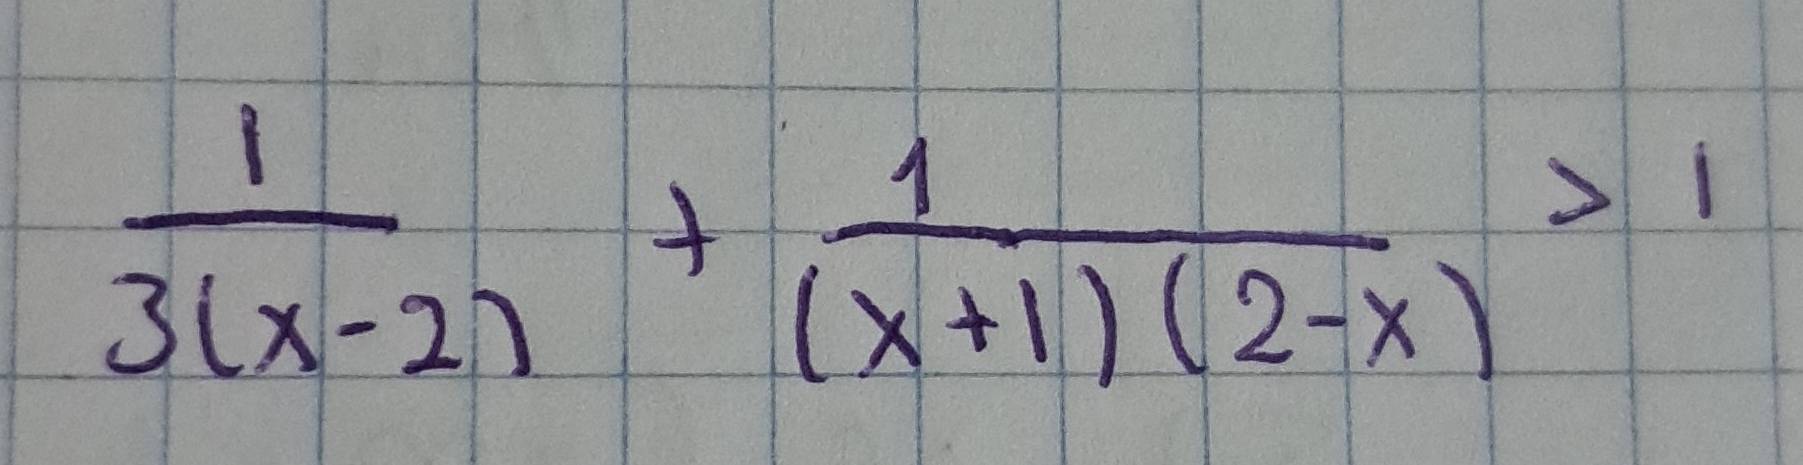 \frac{1}{3(x-2)} + \frac{1}{(x+1)(2-x)} > 1